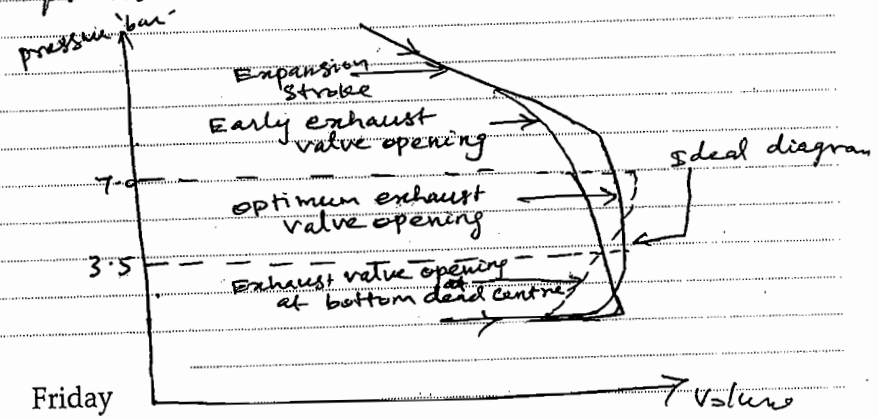 pressure 'bar'
Expansion
stroke
Early exhaust
valve opening
Ideal diagram
7.0
optimum exhaust
valve opening
3.5
Exhaust valve opening
at
at bottom dead centre
Friday
Volume